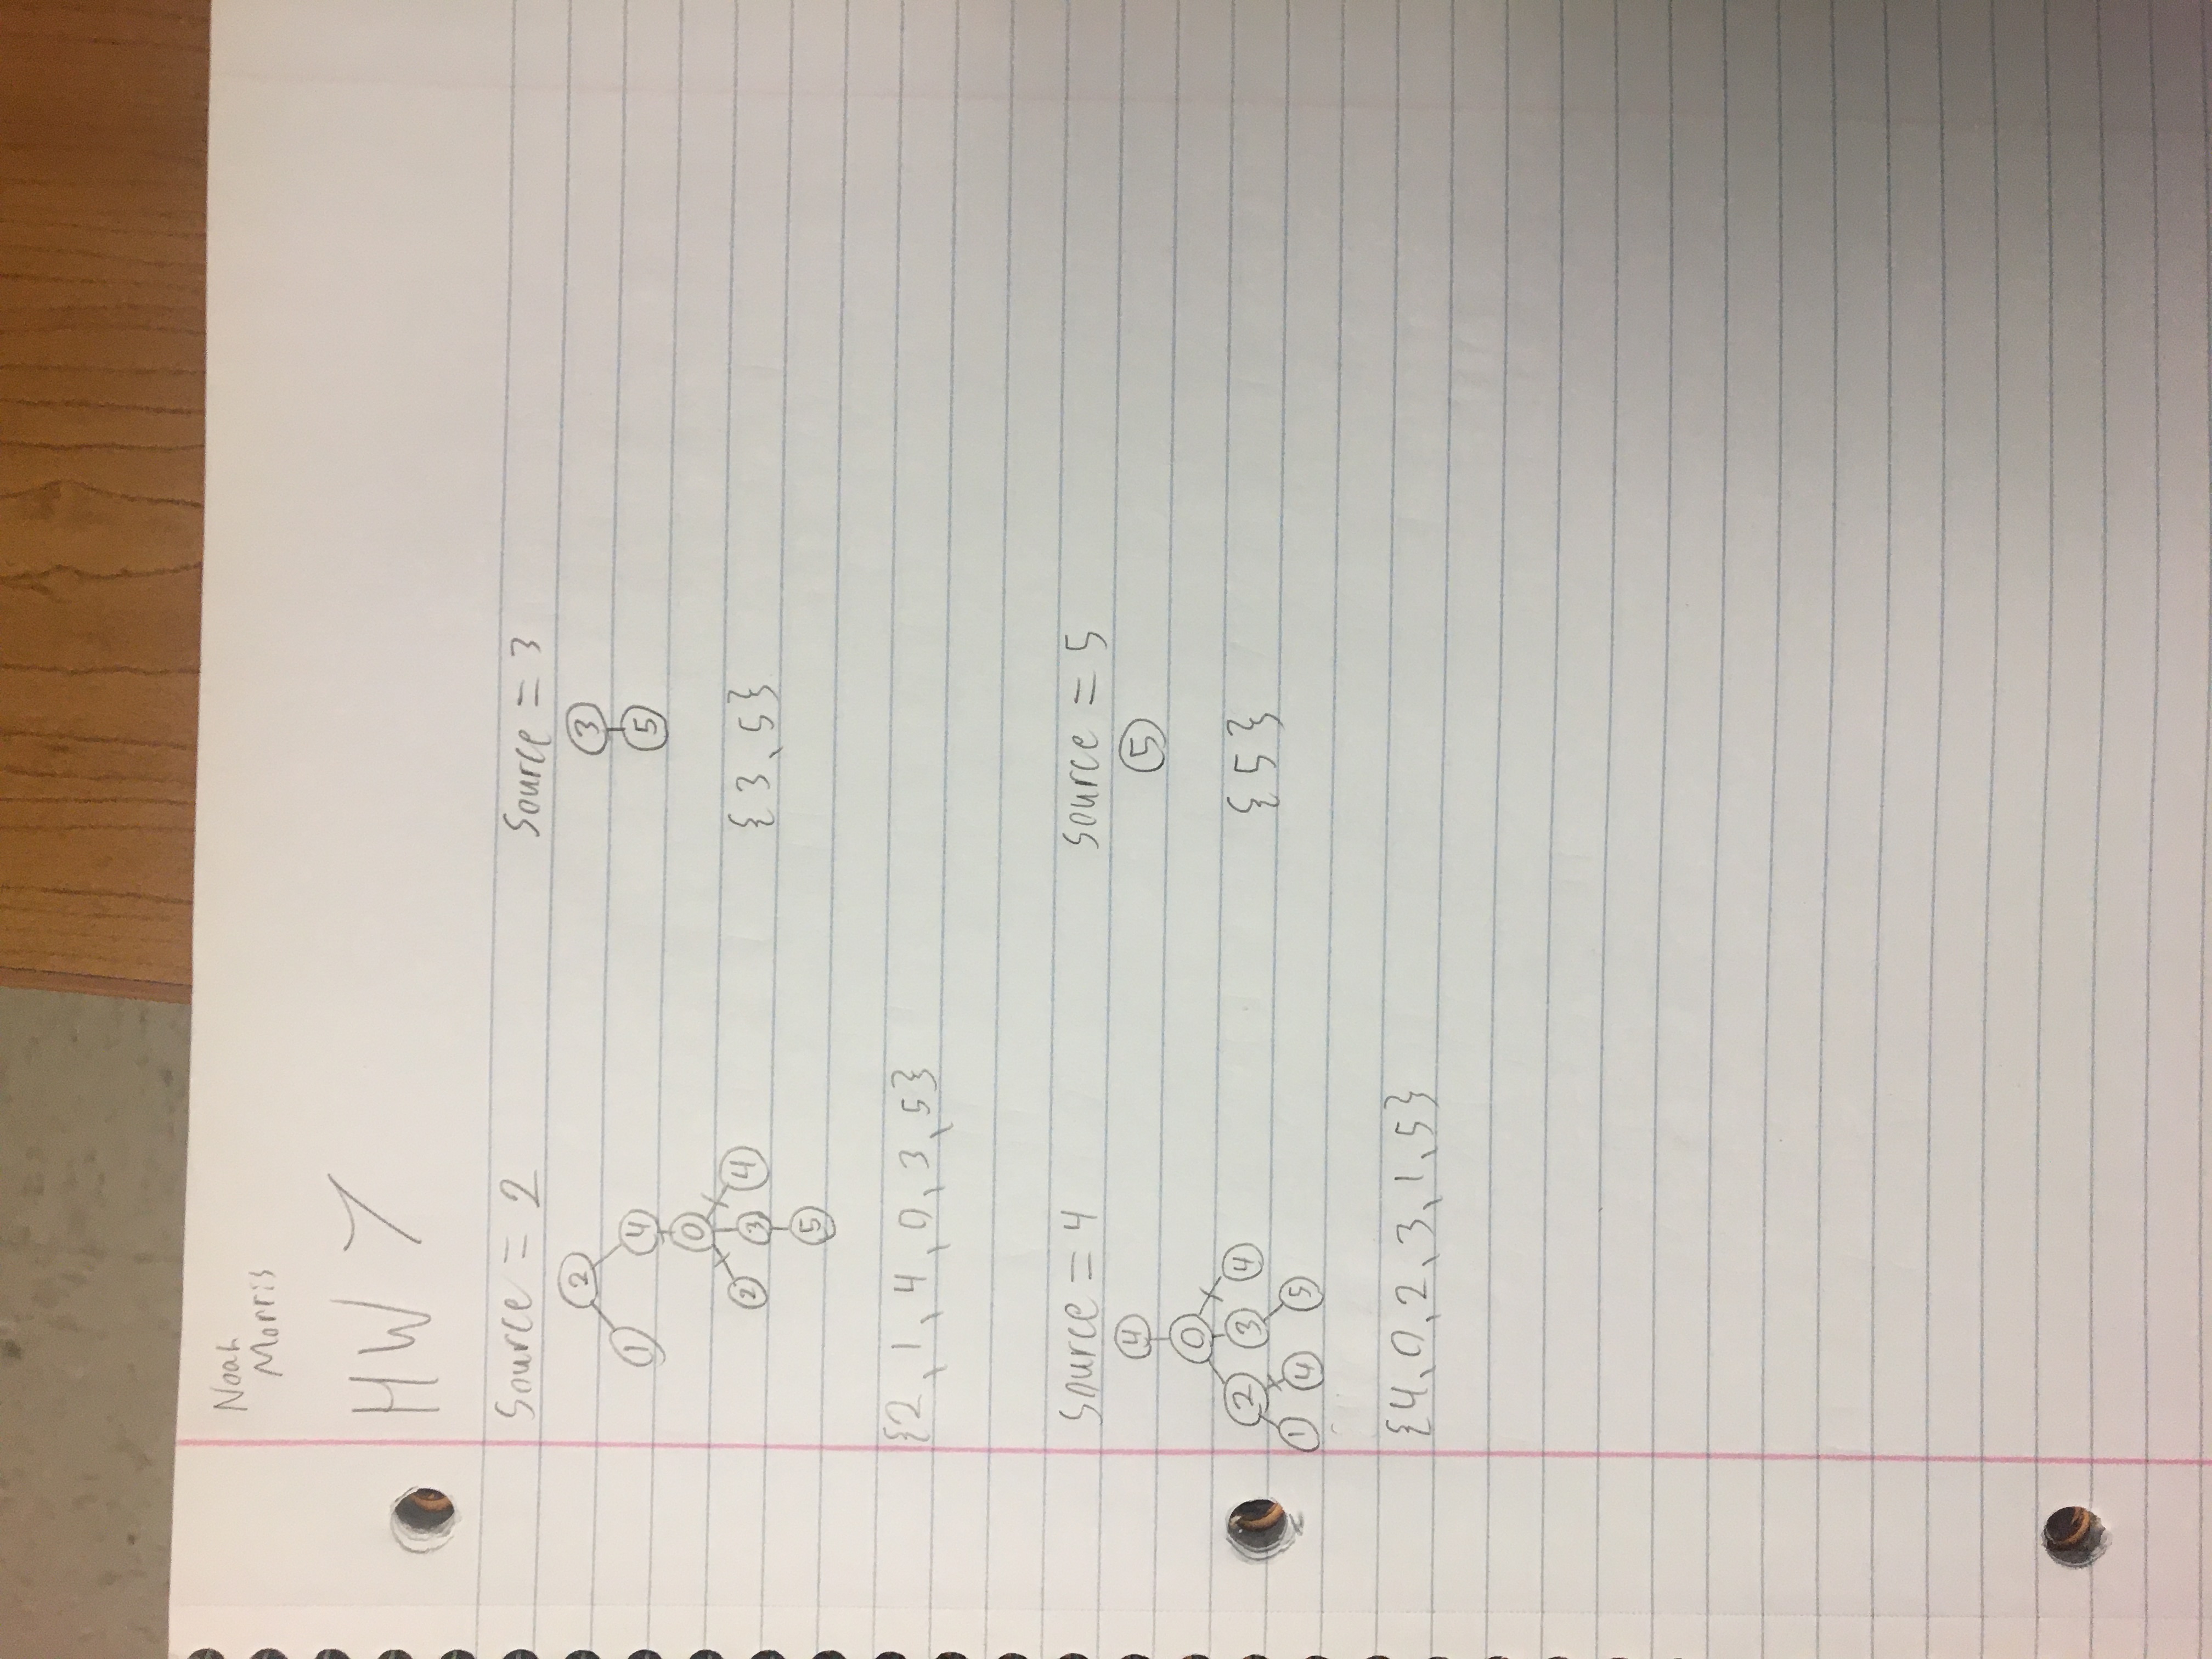 Noah
Morris
HW 7
Source = 2
2
1 4
0
2 3 4
5
{2, 1, 4, 0, 3, 5}
Source = 3
3
5
{3, 5}
Source = 4
4
0
2 3 4
1 4 5
{4, 0, 2, 3, 1, 5}
Source = 5
5
{5}